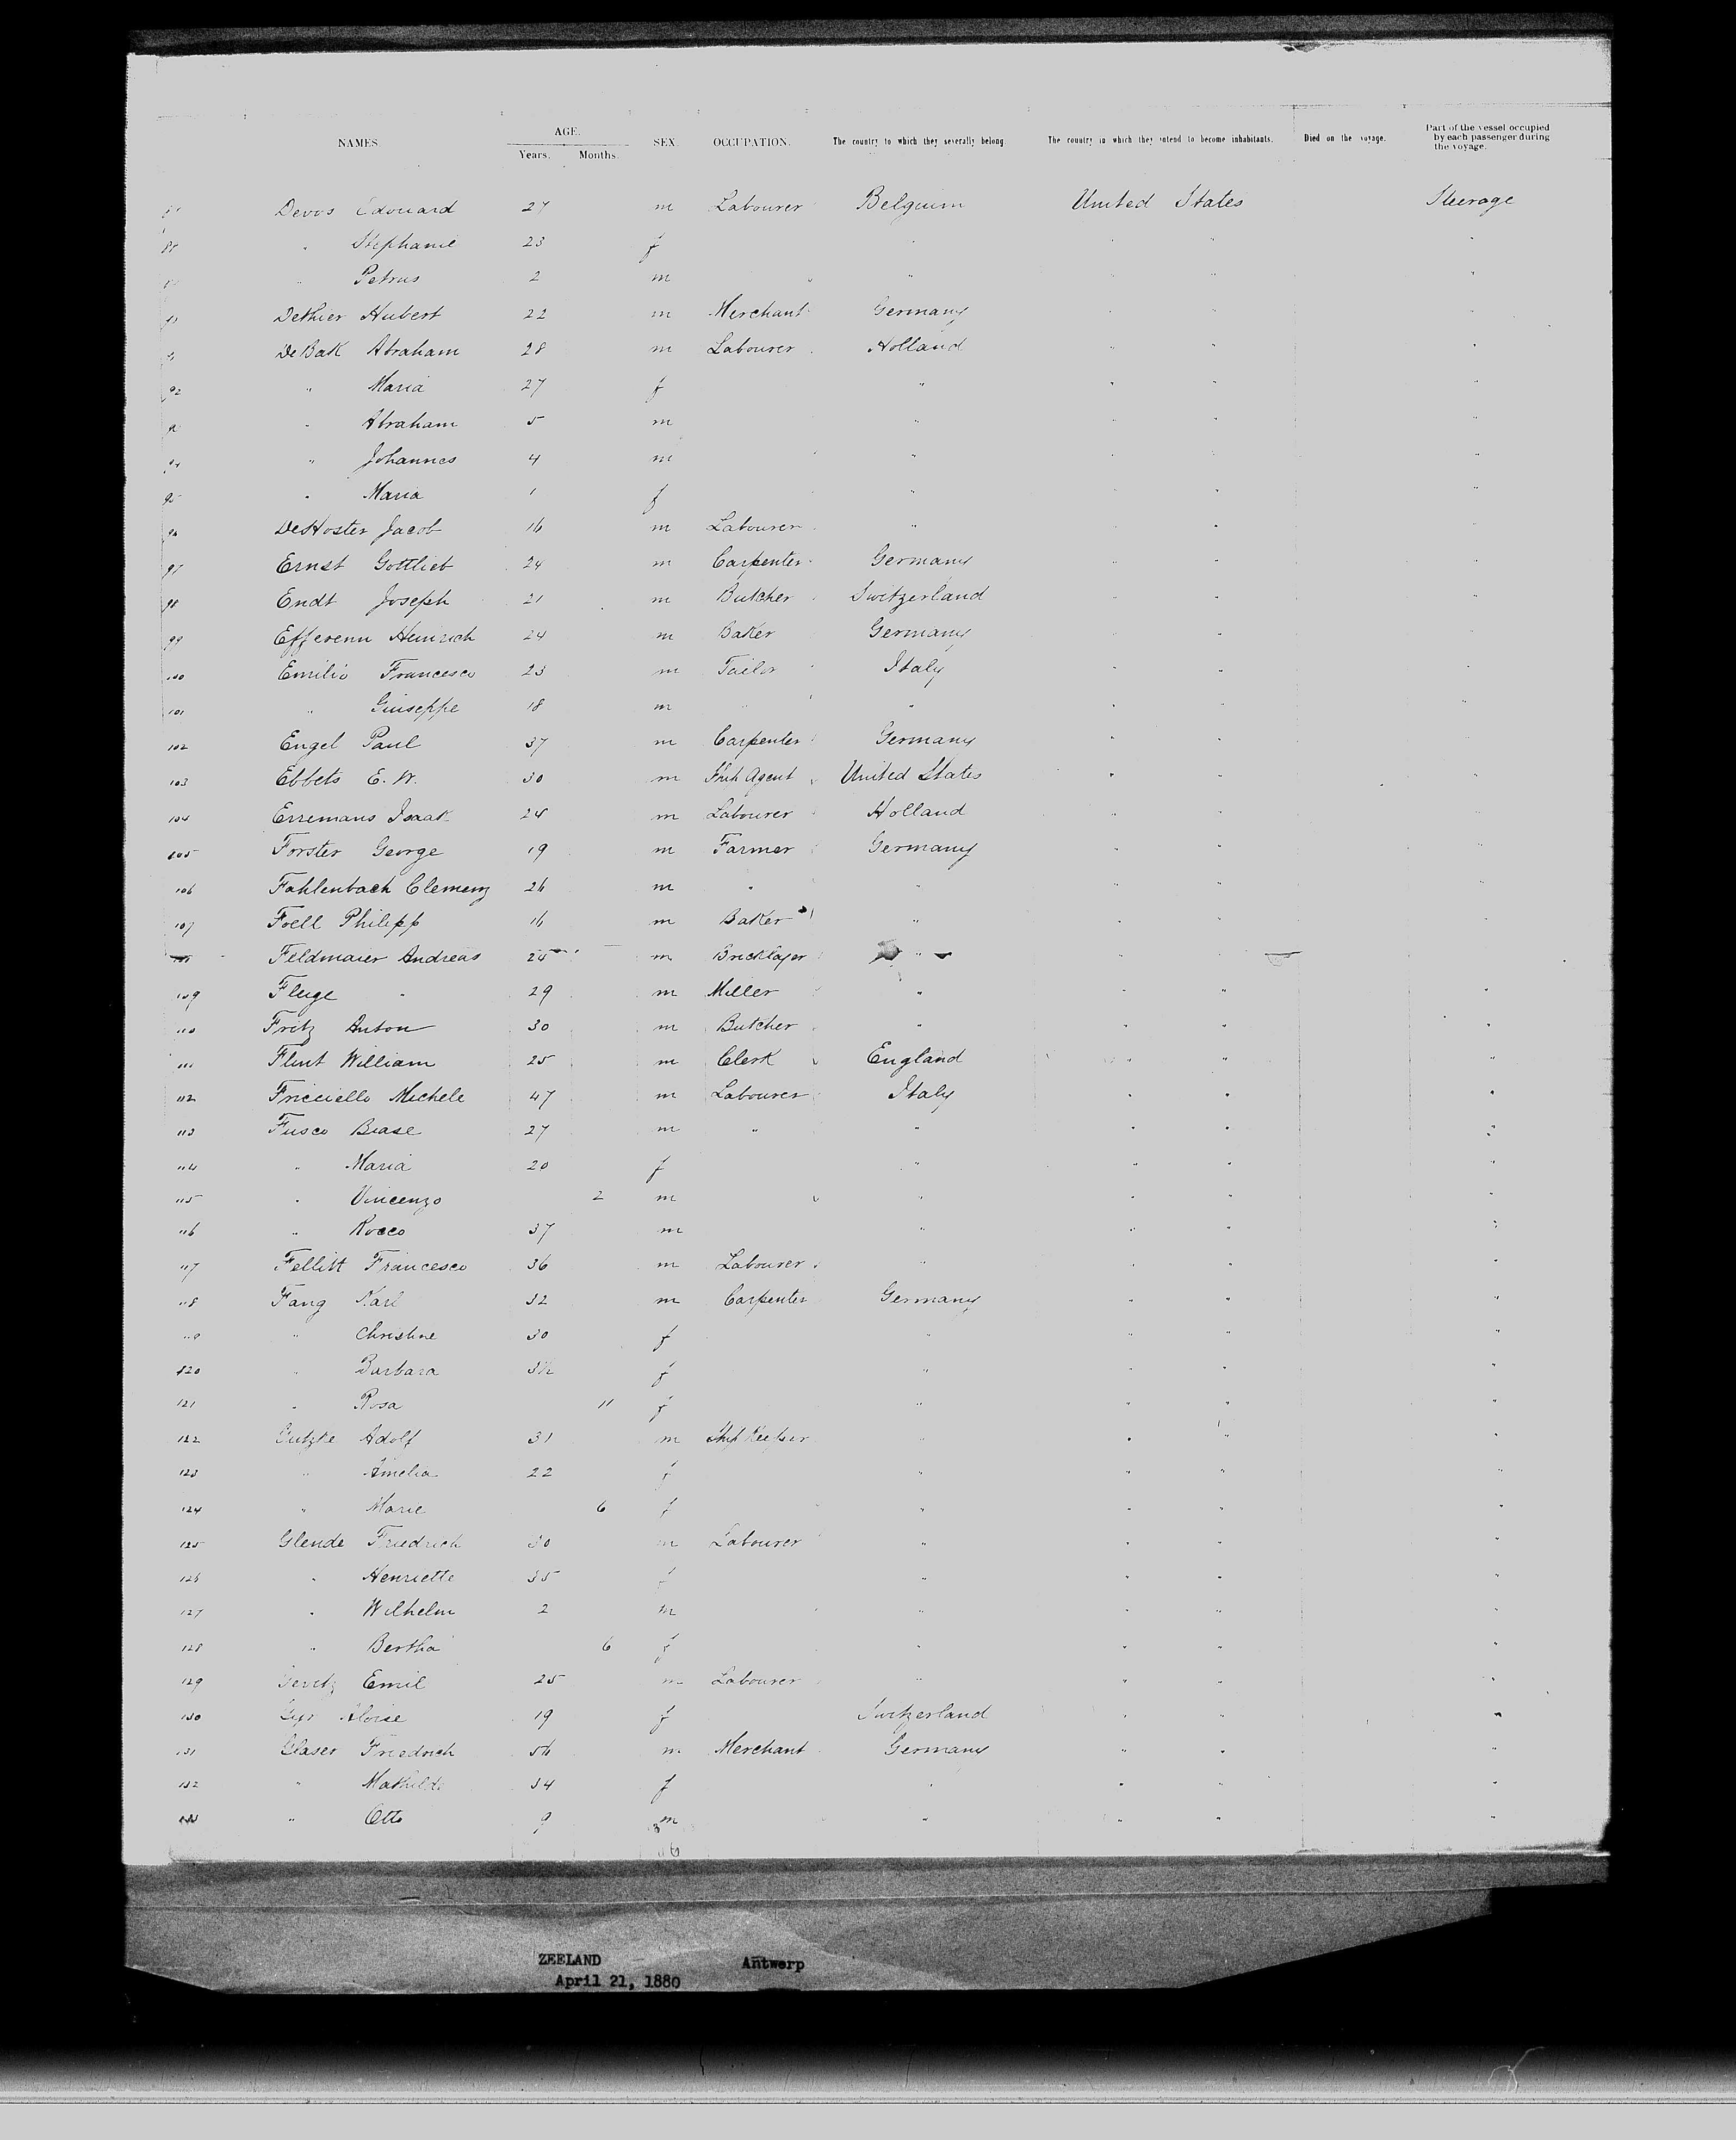 NAMES. AGE. Years. Months. SEX. OCCUPATION. The country to which they severally belong. The country in which they intend to become inhabitants. Died on the voyage. Part of the vessel occupied by each passenger during the voyage.
Devos Edouard 27 m Labourer Belguim United States Steerage
88 " Stephanie 23 f " " " "
" Petrus 2 m " " " "
Dethier Hubert 22 m Merchant Germany " " "
DeBak Abraham 28 m Labourer Holland " " "
92 " Maria 27 f " " " "
" Abraham 5 m " " " "
94 " Johannes 4 m " " " "
95 " Maria 1 f " " " "
96 DeHoster Jacob 16 m Labourer " " " "
97 Ernst Gottlieb 24 m Carpenter Germany " " "
98 Endt Joseph 21 m Butcher Switzerland " " "
99 Efferenn Heinrich 24 m Baker Germany " " "
100 Emilio Francesco 23 m Tailor Italy " " "
101 " Giuseppe 18 m " " " " "
102 Engel Paul 37 m Carpenter Germany " " "
103 Ebbets E. W. 30 m Agent United States " "
104 Erremans Isaak 28 m Labourer Holland " " "
105 Forster George 19 m Farmer Germany " " "
106 Fahlenbach Clemenz 26 m " " " " "
107 Foell Philipp 16 m Baker " " " "
Feldmaier Andreas 25 m Bricklayer " " "
109 Fluge " 29 m Miller " " " "
110 Fritz Anton 30 m Butcher " " " "
111 Flint William 25 m Clerk England " " "
112 Fricciello Michele 47 m Labourer Italy " " "
113 Fusco Biase 27 m " " " " "
114 " Maria 20 f " " " "
115 " Vincenzo 2 m " " " "
116 " Rocco 37 m " " " "
117 Fellitt Francesco 36 m Labourer " " " "
118 Fang Karl 32 m Carpenter Germany " " "
119 " Christine 30 f " " " "
120 " Barbara 3½ f " " " "
121 " Rosa 11 f " " " "
122 Gutzke Adolf 31 m " " " "
123 " Amelia 22 f " " " "
124 " Marie 6 f " " " "
125 Glende Friedrich 30 m Labourer " " " "
126 " Henriette 35 f " " " "
127 " Wilhelm 2 m " " " "
128 " Bertha 6 f " " " "
129 Emil 25 m Labourer " " " "
130 Gyr Aloise 19 f Switzerland " " "
131 Glaser Friedrich 56 m Merchant Germany " " "
132 " Mathilde 34 f " " " "
" Otto 9 m " " " "
ZEELAND Antwerp
April 21, 1880